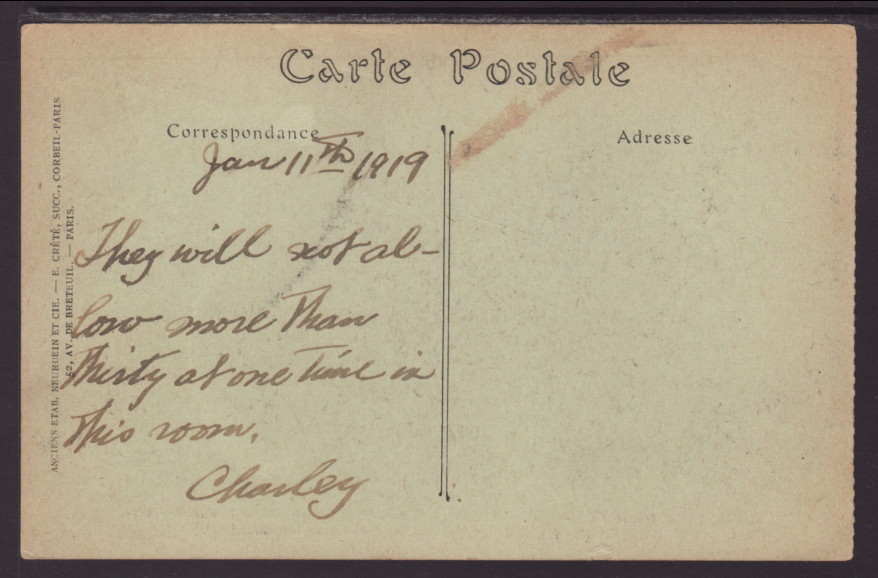 Carte Postale
Correspondance
Adresse
Jan 11th 1919
They will not al-
low more than
thirty at one time in
this room.
Charley
ANCIENS ETAB. NEURDEIN ET CIE. — E. CRÉTÉ, SUCC., CORBEIL-PARIS
52, AV. DE BRETEUIL. — PARIS.